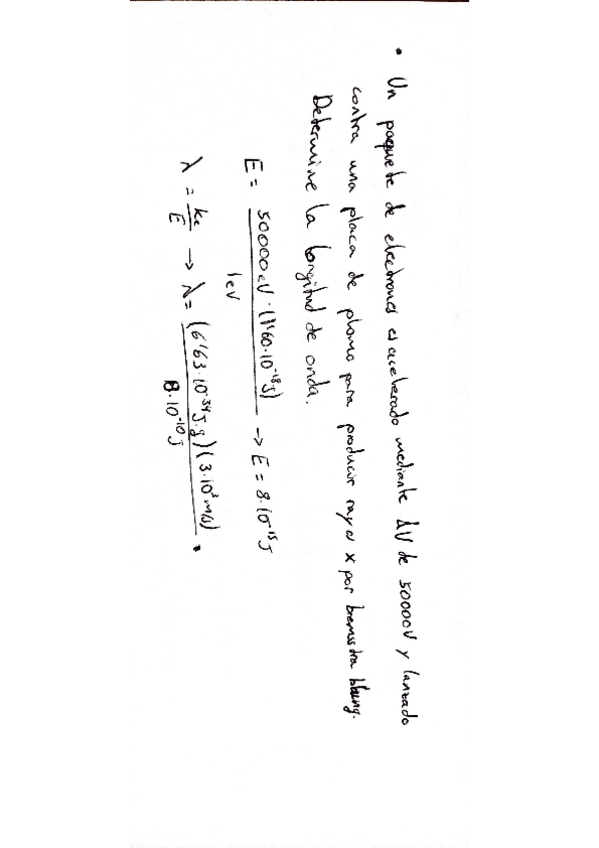 • Un paquete de electrones es acelerado mediante ΔV de 50000V y lanzado
contra una placa de plomo para producir rayos x por bremsstrahlung.
Determine la longitud de onda.
E = 50000eV · (1'60·10⁻¹⁹J) / 1eV → E = 8·10⁻¹⁵J
λ = hc / E → λ = (6'63·10⁻³⁴ J·s)(3·10⁸ m/s) / 8·10⁻¹⁰J